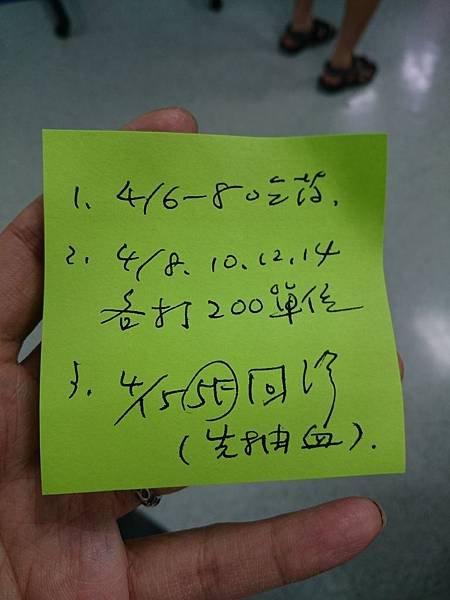 1. 4/6-8 吃藥.
2. 4/8. 10. 12. 14
各打 200 單位
3. 4/15 回診
(先抽血).